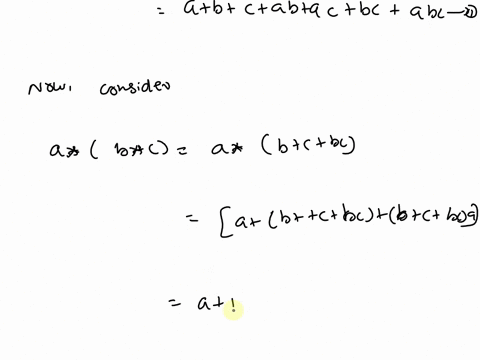 = a+b+c+ab+ac+bc + abc —①
Now, consider
a* ( b*c) = a* (b+c+bc)
= [a+ (b++c+bc)+(b+c+bc)a]
= a+